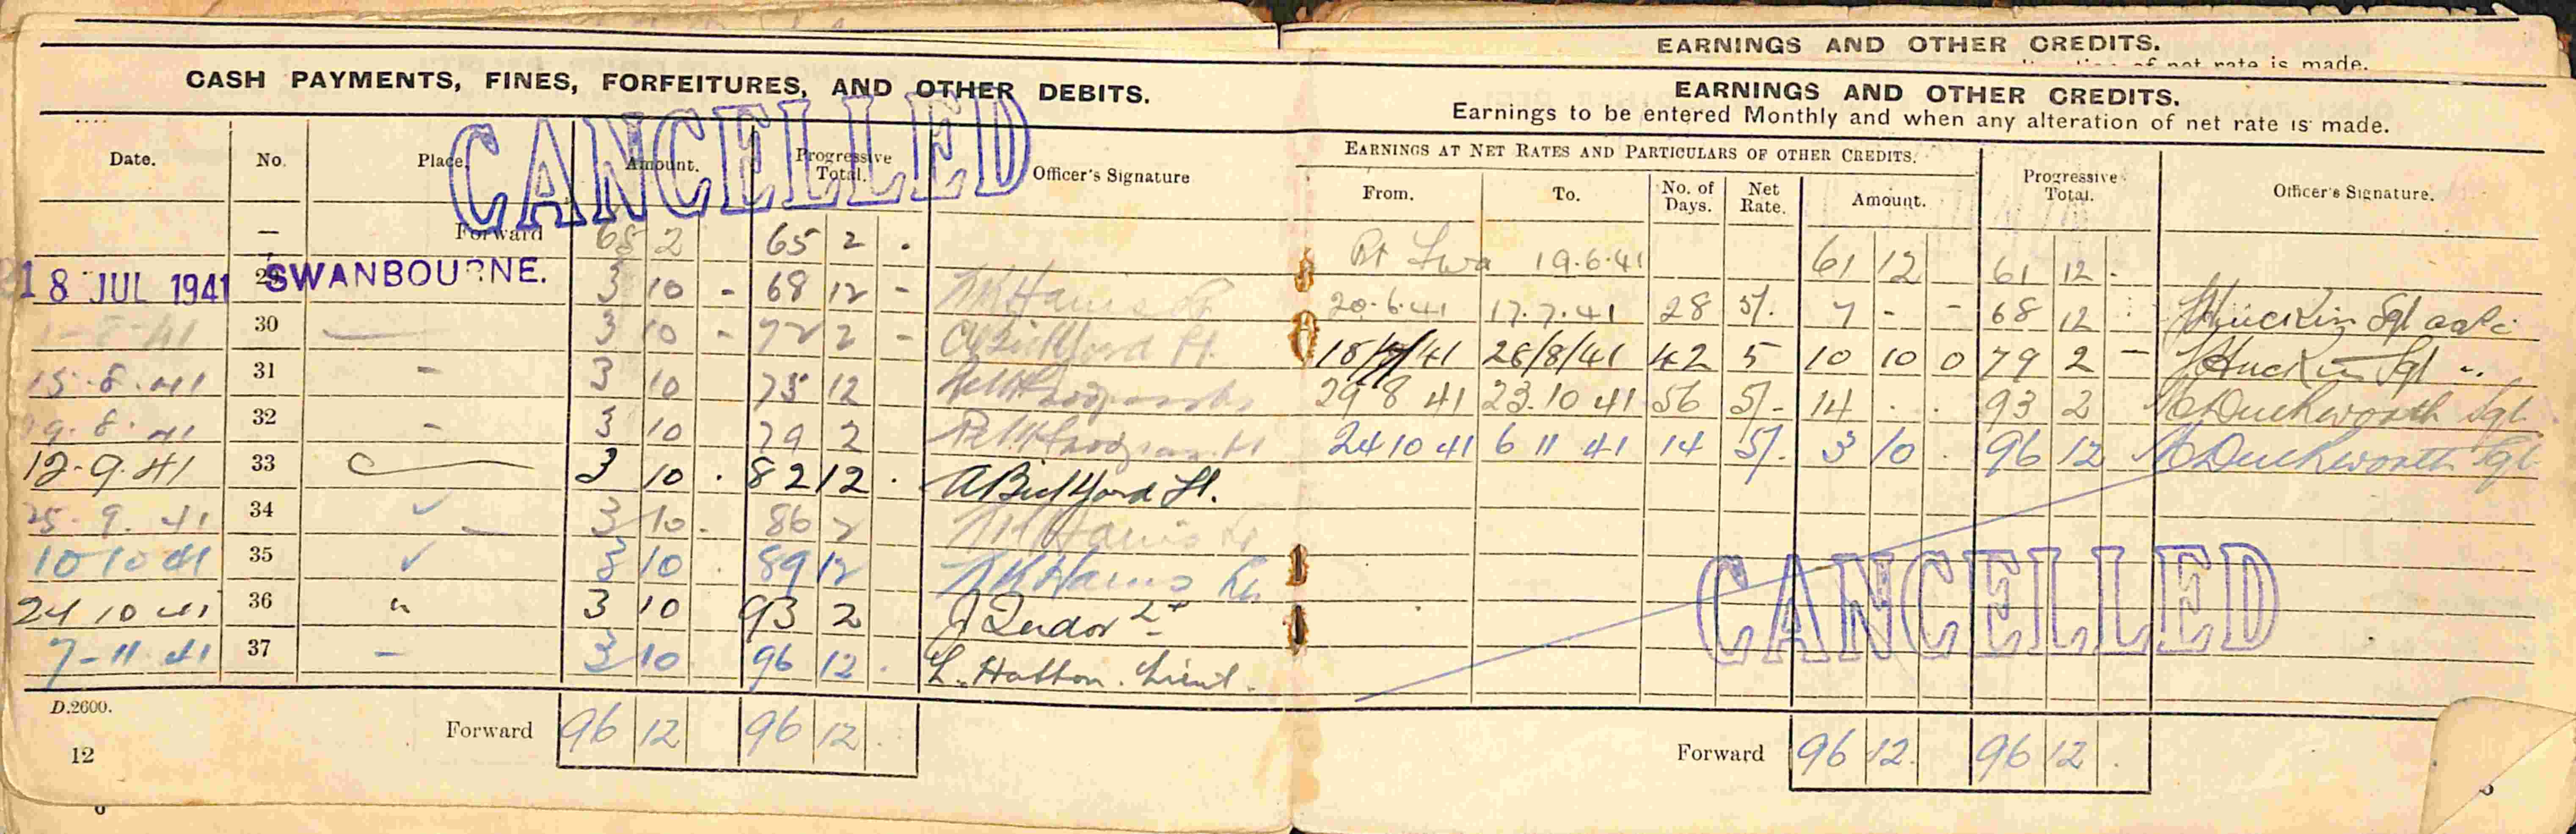 CASH PAYMENTS, FINES, FORFEITURES, AND OTHER DEBITS.
CANCELLED
Date. No. Place. Amount. Progressive Total. Officer's Signature
— Forward 65 2 65 2 .
18 JUL 1941 29 SWANBOURNE. 3 10 - 68 12 -
1-8-41 30 — 3 10 - 72 2 -
15.8.41 31 - 3 10 75 12
29.8.41 32 - 3 10 79 2
12.9.41 33 3 10 . 82 12 . A Bickford Lt.
25.9.41 34 3 10 . 86 2
10 10 41 35 3 10 . 89 12
24 10 41 36 " 3 10 93 2
7-11 41 37 - 3 10 96 12 . L. Hatton. Lieut.
D.2600.
Forward 96 12 96 12 .
12
EARNINGS AND OTHER CREDITS.
of net rate is made.
EARNINGS AND OTHER CREDITS.
Earnings to be entered Monthly and when any alteration of net rate is made.
EARNINGS AT NET RATES AND PARTICULARS OF OTHER CREDITS.
From. To. No. of Days. Net Rate. Amount. Progressive Total. Officer's Signature.
19.6.41 61 12 61 12 -
20.6.41 17.7.41 28 5/. 7 - - 68 12 Sgt
18/7/41 28/8/41 42 5 10 10 0 79 2 - Sgt "
29 8 41 23.10 41 56 5/- 14 . . 93 2 Duckworth Sgt
24 10 41 6 11 41 14 5/. 3 10 . 96 12 Duckworth Sgt
CANCELLED
Forward 96 12 . 96 12 .